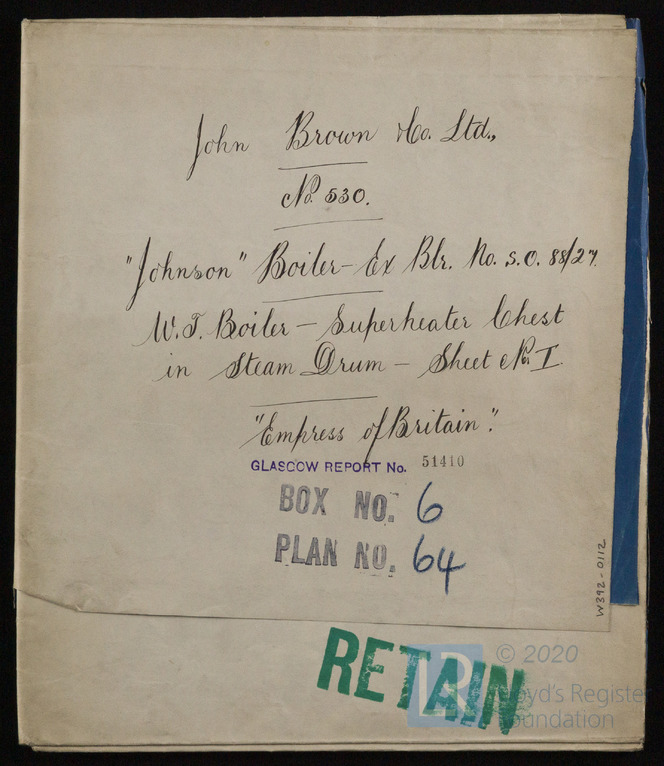 John Brown & Co. Ltd.,
No. 530.
"Johnson" Boiler - Ex Blr. No. S.O. 88/27.
W.T. Boiler - Superheater Chest
in Steam Drum - Sheet No. I.
"Empress of Britain".
GLASGOW REPORT No. 51410
BOX NO. 6
PLAN NO. 64
W392-0112
RETAIN
© 2020
LR Lloyd's Register
Foundation